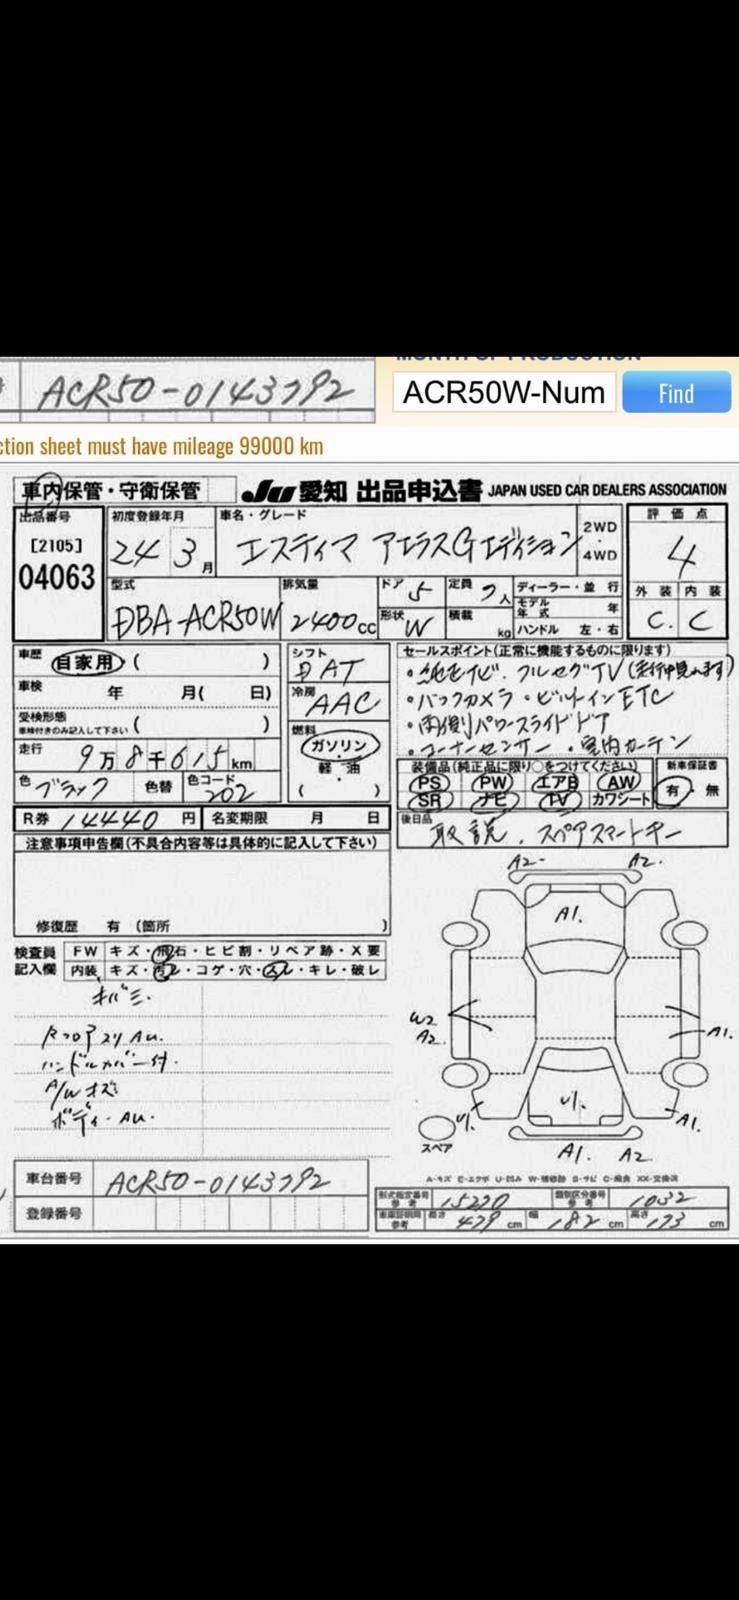 ACR50-0143792
ACR50W-Num
Find
ction sheet must have mileage 99000 km
車内保管・守衛保管
JU 愛知 出品申込書 JAPAN USED CAR DEALERS ASSOCIATION
出品番号
[2105]
04063
初度登録年月
24 3月
車名・グレード
エスティマ アエラスGエディション
2WD
・
4WD
評価点
4
外装 内装
C. C
型式
DBA-ACR50W
排気量
2400cc
ドア 5
定員 7人
形状 W
積載 kg
ディーラー・並行
モデル年式 年
ハンドル 左・右
車歴 自家用 ( )
車検 年 月( 日)
受検形態
車検付きのみ記入して下さい ( )
走行 9万8千615km
色 ブラック 色替 色コード 202
シフト
DAT
冷房
AAC
燃料
ガソリン
軽・油
( )
セールスポイント(正常に機能するものに限ります)
・純正ナビ、フルセグTV(走行中見れます)
・バックカメラ・ビルトインETC
・両側パワースライドドア
・コーナーセンサー ・室内カーテン
装備品(純正品に限り○をつけてください)
PS PW エアB AW
SR ナビ TV カワシート
新車保証書
有・無
後日品
取説、スペアスマートキー
R券 14440円 名変期限 月 日
注意事項申告欄(不具合内容等は具体的に記入して下さい)
修復歴 有 (箇所 )
検査員
記入欄
FW キズ・飛石・ヒビ割・リペア跡・X要
内装 キズ・汚レ・コゲ・穴・スレ・キレ・破レ
キバミ.
ハンドルカバー付.
A/Wキズ
ボディ・AU.
A2 A2.
A1.
W2
A2
A1.
U1
U1.
A1.
スペア
A1. A2
A-キズ E-エクボ U-凹み W-補修跡 S-サビ C-腐食 XX-交換済
車台番号 ACR50-0143792
登録番号
形式指定番号
参考
15270
類別区分番号
参考
1032
車庫証明用
参考
長さ 479cm 幅 182cm 高さ 173cm